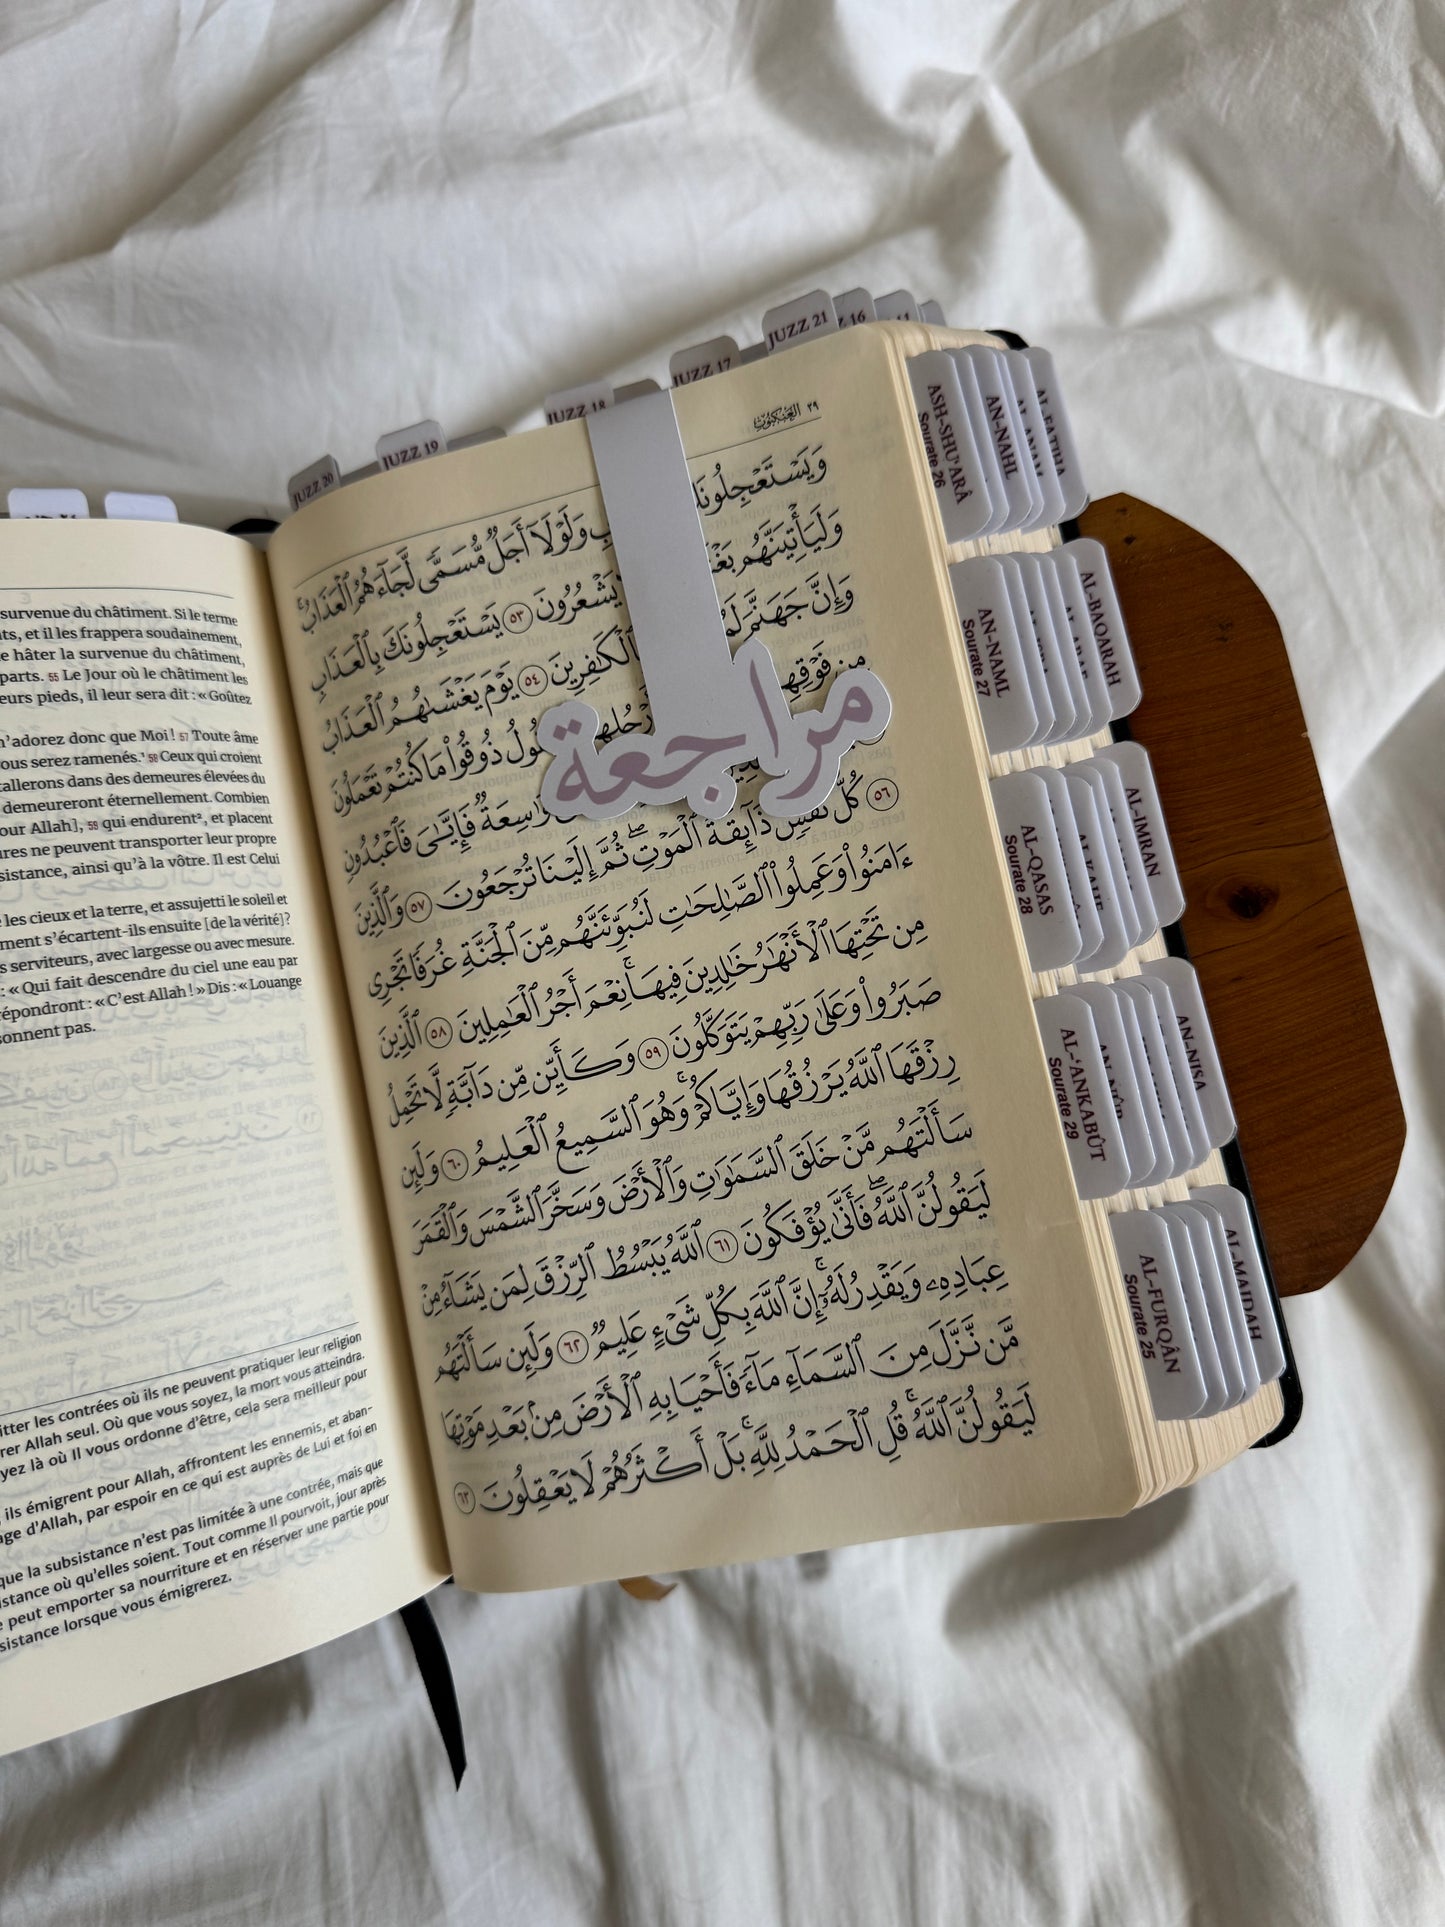 JUZZ 20
JUZZ 19
JUZZ 18
JUZZ 17
JUZZ 21
16
11
العنكبوت ٢٩
وَيَسْتَعْجِلُونَكَ
بِ وَلَوْلَآ أَجَلٌ مُّسَمًّى لَّجَآءَهُمُ ٱلْعَذَابُۚ
وَلَيَأْتِيَنَّهُم
يَشْعُرُونَ ٥٣ يَسْتَعْجِلُونَكَ بِٱلْعَذَابِ
وَإِنَّ جَهَنَّمَ
ٱلْكَٰفِرِينَ ٥٤ يَوْمَ يَغْشَىٰهُمُ ٱلْعَذَابُ
مِن فَوْقِهِ
ذُوقُوا۟ مَا كُنتُمْ تَعْمَلُونَ
مراجعة
وَٰسِعَةٌ فَإِيَّٰىَ فَٱعْبُدُونِ
٥٦ كُلُّ نَفْسٍ ذَآئِقَةُ ٱلْمَوْتِۖ ثُمَّ إِلَيْنَا تُرْجَعُونَ ٥٧ وَٱلَّذِينَ
ءَامَنُوا۟ وَعَمِلُوا۟ ٱلصَّٰلِحَٰتِ لَنُبَوِّئَنَّهُم مِّنَ ٱلْجَنَّةِ غُرَفًا تَجْرِى
مِن تَحْتِهَا ٱلْأَنْهَٰرُ خَٰلِدِينَ فِيهَاۚ نِعْمَ أَجْرُ ٱلْعَٰمِلِينَ ٥٨ ٱلَّذِينَ
صَبَرُوا۟ وَعَلَىٰ رَبِّهِمْ يَتَوَكَّلُونَ ٥٩ وَكَأَيِّن مِّن دَآبَّةٍ لَّا تَحْمِلُ
رِزْقَهَا ٱللَّهُ يَرْزُقُهَا وَإِيَّاكُمْۚ وَهُوَ ٱلسَّمِيعُ ٱلْعَلِيمُ ٦٠ وَلَئِن
سَأَلْتَهُم مَّنْ خَلَقَ ٱلسَّمَٰوَٰتِ وَٱلْأَرْضَ وَسَخَّرَ ٱلشَّمْسَ وَٱلْقَمَرَ
لَيَقُولُنَّ ٱللَّهُۖ فَأَنَّىٰ يُؤْفَكُونَ ٦١ ٱللَّهُ يَبْسُطُ ٱلرِّزْقَ لِمَن يَشَآءُ مِنْ
عِبَادِهِۦ وَيَقْدِرُ لَهُۥٓۚ إِنَّ ٱللَّهَ بِكُلِّ شَىْءٍ عَلِيمٌ ٦٢ وَلَئِن سَأَلْتَهُم
مَّن نَّزَّلَ مِنَ ٱلسَّمَآءِ مَآءً فَأَحْيَا بِهِ ٱلْأَرْضَ مِنۢ بَعْدِ مَوْتِهَا
لَيَقُولُنَّ ٱللَّهُۚ قُلِ ٱلْحَمْدُ لِلَّهِۚ بَلْ أَكْثَرُهُمْ لَا يَعْقِلُونَ ٦٣
survenue du châtiment. Si le terme
ts, et il les frappera soudainement,
e hâter la survenue du châtiment,
parts. 55 Le Jour où le châtiment les
eurs pieds, il leur sera dit : « Goûtez
n'adorez donc que Moi ! 57 Toute âme
ous serez ramenés.¹ 58 Ceux qui croient
tallerons dans des demeures élevées du
demeureront éternellement. Combien
our Allah], 59 qui endurent², et placent
ures ne peuvent transporter leur propre
sistance, ainsi qu'à la vôtre. Il est Celui
é les cieux et la terre, et assujetti le soleil et
ment s'écartent-ils ensuite [de la vérité] ?
s serviteurs, avec largesse ou avec mesure.
: « Qui fait descendre du ciel une eau par
répondront : « C'est Allah ! » Dis : « Louange
sonnent pas.
itter les contrées où ils ne peuvent pratiquer leur religion
rer Allah seul. Où que vous soyez, la mort vous atteindra.
yez là où Il vous ordonne d'être, cela sera meilleur pour
, ils émigrent pour Allah, affrontent les ennemis, et aban-
age d'Allah, par espoir en ce qui est auprès de Lui et foi en
que la subsistance n'est pas limitée à une contrée, mais que
istance où qu'elles soient. Tout comme Il pourvoit, jour après
e peut emporter sa nourriture et en réserver une partie pour
sistance lorsque vous émigrerez.
ASH-SHU'ARÂ
Sourate 26
AN-NAHL
AL-FATIHA
AN-NAML
Sourate 27
AL-BAQARAH
AL-QASAS
Sourate 28
AL-IMRAN
AL-'ANKABÛT
Sourate 29
AN-NISA
AL-FURQÂN
Sourate 25
AL-MAIDAH